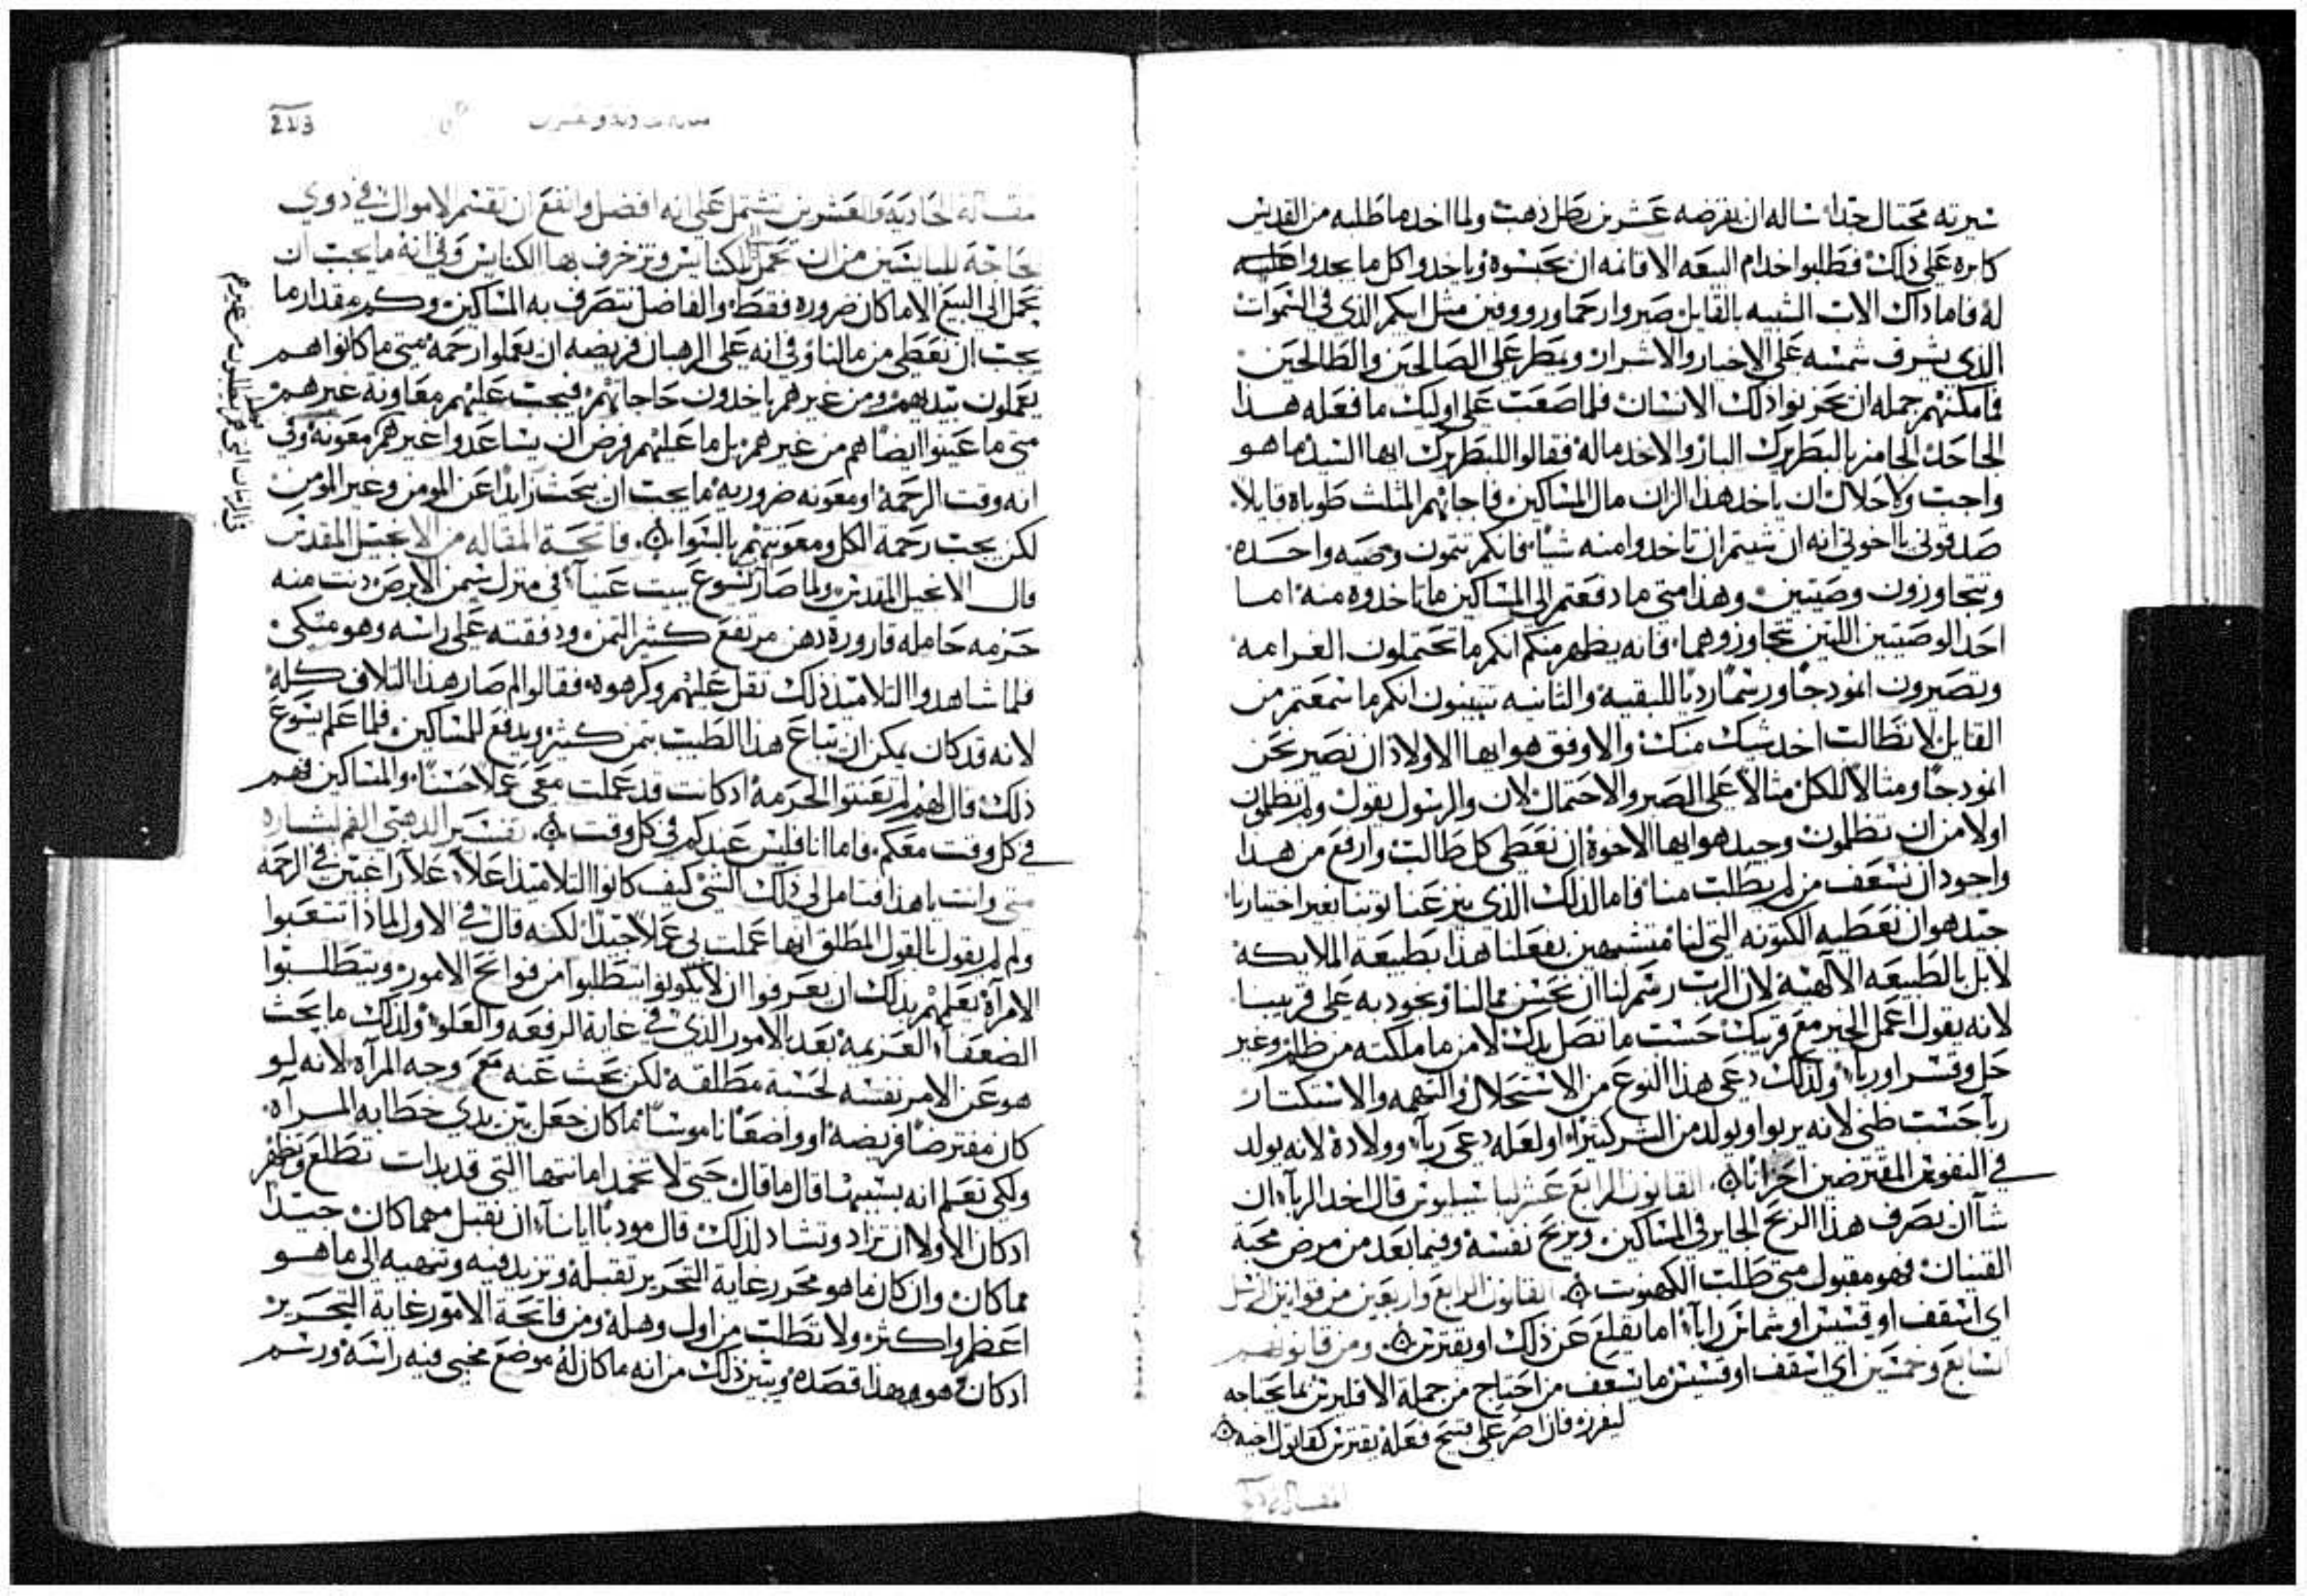 سيرته محتال جدا ساله ان يقرضه عشرين رطل ذهب ولما اخد ما طلبه من القديس
كابره على ذلك فطلبوا خدام البيعه الاقانمه ان يحبسوه وياخدوا كل ما يجدوا عليه
له فاما داك الاب الشبيه بالقايل صيروا رحما ورووفين مثل ابيكم الذي في السموات
الذي يشرف شمسه على الاخيار والاشرار ويمطر على الصالحين والطالحين
فامكنهم جمله ان يحزنوا ذلك الانسان فلما صعب على اوليك ما فعله هدا
الجاحد الحامز بالبطريرك البار والاخد ماله فقالوا للبطريرك ايها السيد ما هو
واجب ولا حلال ان ياخد هذا الزان مال المساكين فاجابهم المثلث طوباه قايلا
صدقوني يا اخوتي انه ان شيتم ان تاخدوا منه شيا فانكم تتمون وصيه واحده
وتتجاوزون وصيتين وهذا متى ما دفعتم الى المساكين ما تاخدوه منه اما
احد الوصيتين اللتين تتجاوزوهما فانه يظهر منكم انكم ما تحتملون الغرامه
وتصيرون انمودجا ورسما رديا للبقيه والثانيه تتبينون انكم ما سمعتم من
القايل لا تطالب اخد شيك منك والاوفق هو ايها الاولاد ان نصير نحن
انمودجا ومثالا للكل مثالا على الصبر والاحتمال لان والرسول يقول ولم تظلمون
اولا من ان تظلمون وجيد هو ايها الاخوة ان نعطي كل طالب وارفع من هدا
واجود ان نسعف من لم يطلب منا فاما لذلك الذي ينزع عنا توبنا بغير اختيارنا
جيد هو ان نعطيه الكتونه التي لنا متشبهين بفعلنا هذا بطبيعة الملايكه
لا بل بالطبيعه الالهيه لان الرب رسم لنا ان نحسن مما لنا ونجود به على قريبنا
لانه يقول اعمل الخير مع قريبك حسب ما تصل يدك لا من ما ملكته من ظلم وغير
حل وقسر او ربا ولذلك دعى هذا النوع من الاستحلال والتهمه والاستكتار
ربا حسب ظني لانه يربوا ويولد من الشر كثيرا او لعله دعى ربا وولادة لانه يولد
في النفوس المقترضين احزانا القانون الرابع عشر لباسيليوس قال اخد الربا ان
شا ان يصرف هذا الربح الجاير في المساكين ويريح نفسه وفيما بعد من مرض محبة
القنيان فهو مقبول متى طلب الكهنوت القانون الرابع واربعين من قوانين الرسل
اي اسقف او قسيس او شماس رابا اما يقلع عن ذلك او يقترس ومن قانونهم
السابع وخمسين اي اسقف او قسيس ما يسعف من احتاج من جملة الاقليرس بما يحتاجه
ليفرز فان اصر على قبيح فعله يقترس كقاتول اخيه

213
مقالة الحاديه والعشرين تشتمل على انه افضل وانفع ان تقسم الاموال في دوي
الحاجة للبايسين من ان تحمل للكنايس وتزخرف بها الكنايس وفي انه ما يجب ان
يحمل الى البيع الا ما كان ضروره فقط والفاضل تتصرف به المساكين وكم مقدار ما
يجب ان نعطي من مالنا وفي انه على الرهبان فريضه ان يعملوا رحمة متى ما كانوا هم
يعملون بيديهم ومن غيرهم ياخدون حاجاتهم فيجب عليهم معاونة غيرهم
متى ما عينوا ايضا هم من غيرهم بل ما عليهم فرض ان يساعدوا غيرهم معونة وفي
انه وقت الرحمة او معونه ضروريه ما يجب ان يبحث زايدا عن المومن وغير المومن
لكن يجب رحمة الكل ومعونتهم بالسوا فاتحة المقاله من الانجيل المقدس
قال الانجيل المقدس ولما صار يسوع ببيت عنيا في منزل سيمن الابرص دنت منه
حرمه حامله قارورة دهن مرتفع كثير التمن ودفقته على راسه وهو متكي
فلما شاهدوا التلاميذ ذلك تقل عليهم وكرهوه فقالوا لم صار هذا التلاف كله
لانه قد كان يمكن ان يتباع هذا الطيب بتمن كثير ويدفع للمساكين فلما علم يسوع
ذلك قال لهم لم تعنتوا الحرمة ادكانت قد عملت معي عملا حسنا والمساكين فهم
في كل وقت معكم واما انا فليس عندكم في كل وقت تفسير الدهبي الفم لبشارة
متى وانت ياهذا فتامل لي ذلك الشي كيف كانوا التلاميذ اعلا علا راغبين في الرحمة
ولم لم يقول بالقول المطلق انها عملت لي عملا جيدا لكنه قال في الاول لماذا تتعبوا
الامراة يعلمهم بذلك ان يعرفوا ان لا يكونوا يتطلبوا من فواتح الامور ويتطلبوا
الضعفا العزيمة بعد الامور الذي في غاية الرفعه والعلو ولذلك ما يبحث
هو عن الامر نفسه لحسنة مطلقه لكن بحث عنه مع وجه المراه لانه لو
كان مفترضا فريضة او واضعا ناموسا ما كان جعل بين يدي خطابه المراه
ولكي تعلم انه بسببها قال ما قال حتى لا تخمد امانتها التي قد بدات تطلع وتظفر
ادكان الاولا ان تزاد وتشاد لذلك قال مودبا ايانا ان نقبل مهما كان جيدا
مما كان وان كان ما هو محرر غاية التحرير نقبله ونزيد فيه وننهيه الى ما هو
اعظم واكثر ولا نطلب من اول وهلة ومن فاتحة الامور غاية التحرير
ادكان هو وبهذا قصده ويتبين ذلك من انه ما كان له موضع مخبى فيه راسه ورسم